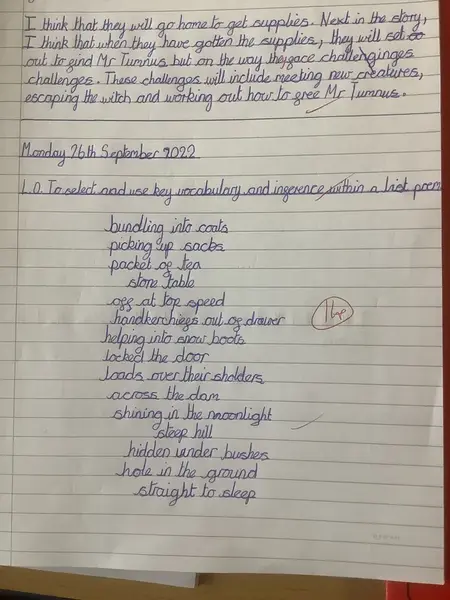 I think that they will go home to get supplies. Next in the story,
I think that when they have gotten the supplies, they will set so
out to find Mr Tumnus but on the way they face challenginges
challenges. These challenges will include meeting new creatures,
escaping the witch and working out how to free Mr Tumnus.
Monday 26th September 2022
L.O. To select and use key vocabulary and inference within a list poem
bundling into coats
picking up sacks
packet of tea
stone table
off at top speed
handkerchiefs out of drawer
helping into snow boots
locked the door
loads over their sholders
across the dam
shining in the moonlight
steep hill
hidden under bushes
hole in the ground
straight to sleep